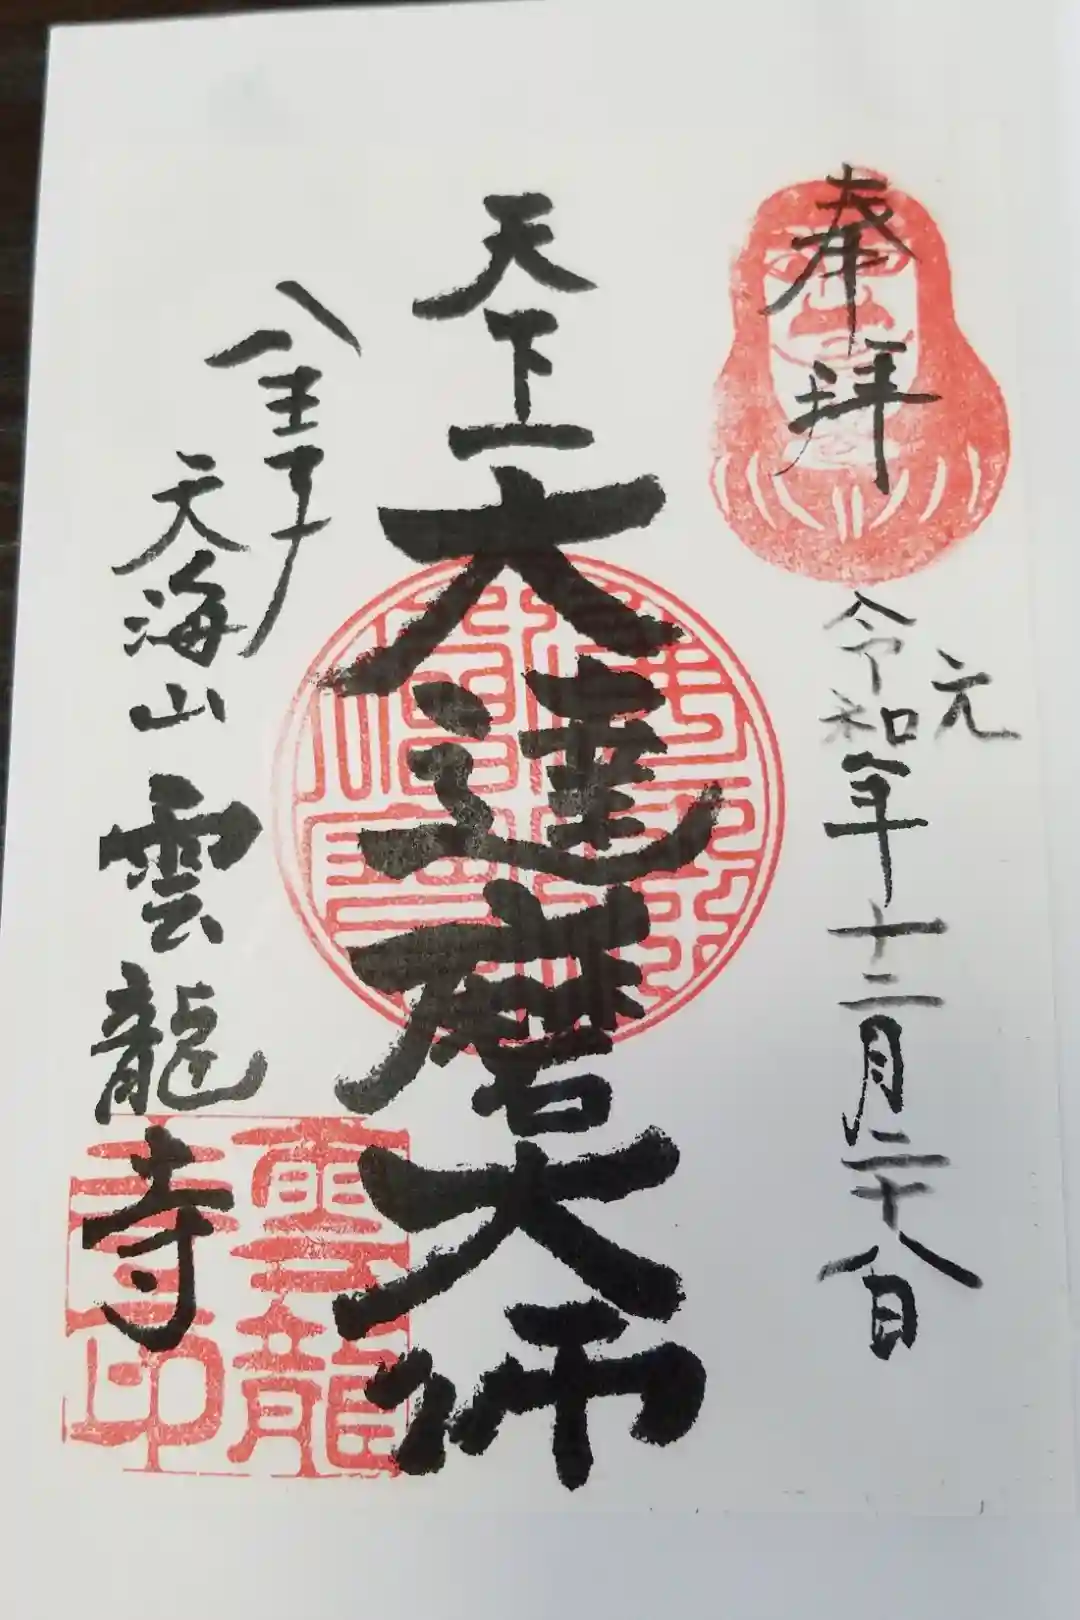 奉拝
令和元年十二月二十八日
天下一
大達磨大師
八王子
天海山 雲龍寺
雲龍寺印